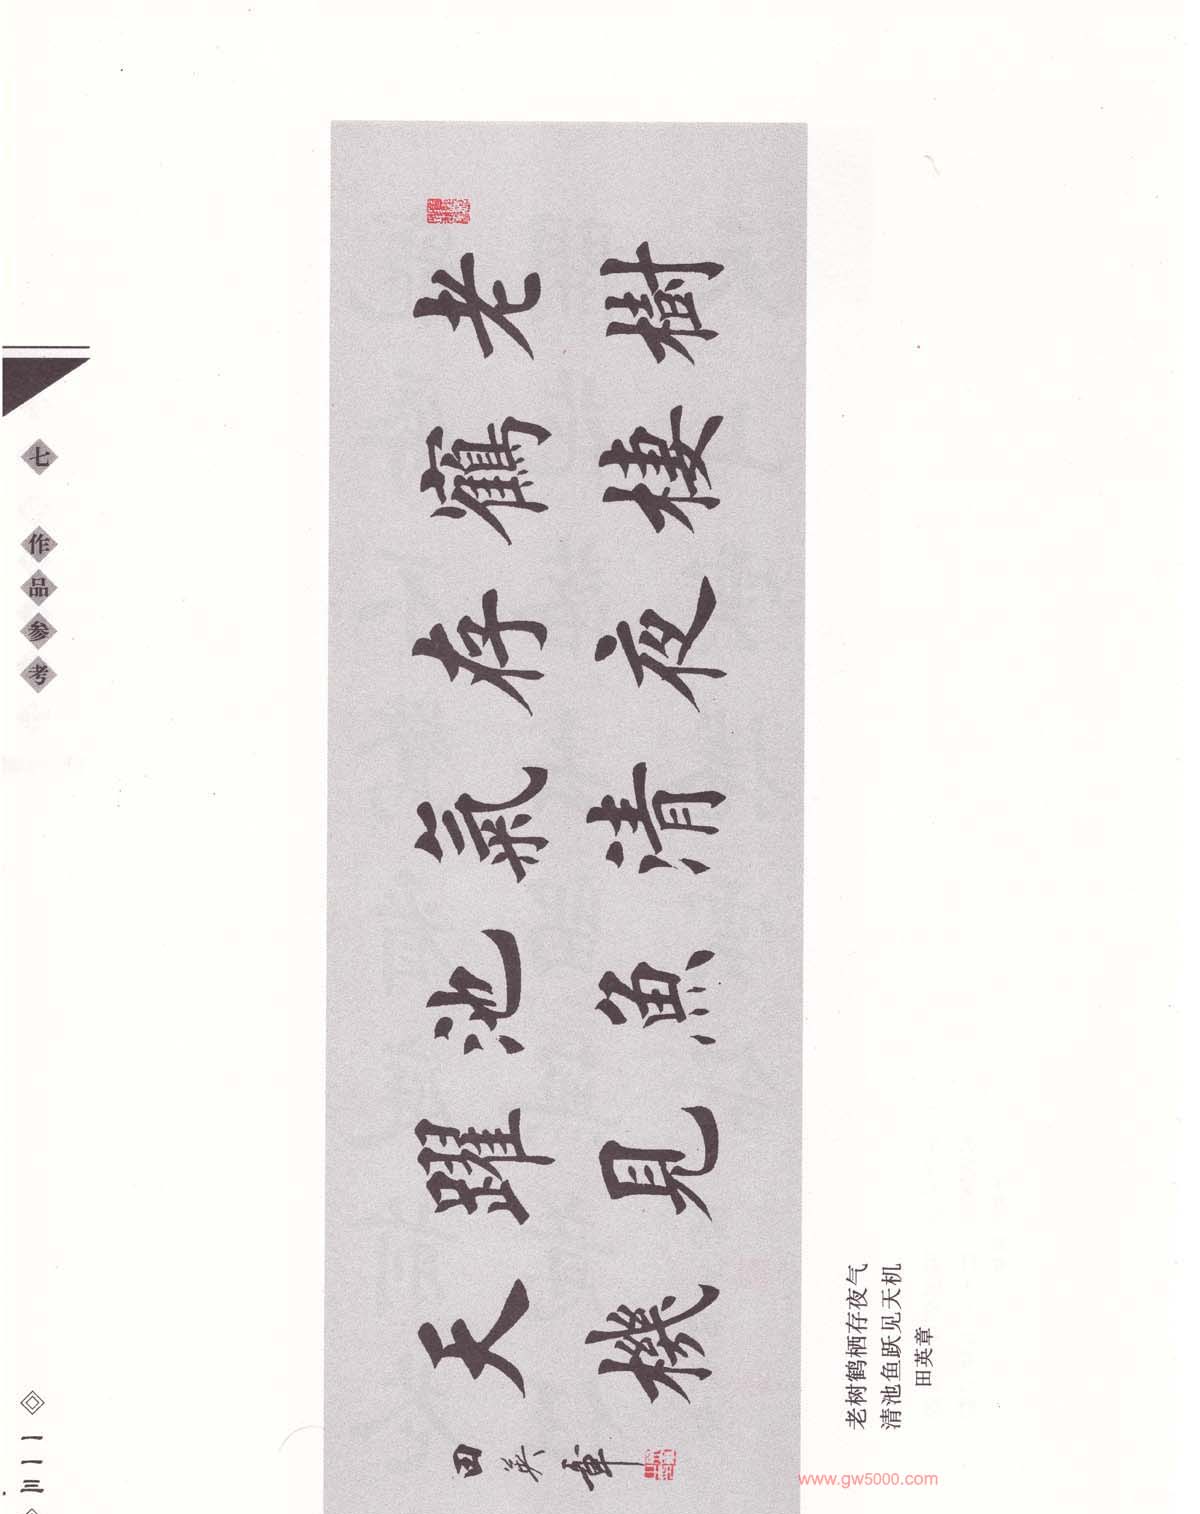 七 作品参考
老樹
鶴棲
存夜
氣清
池魚
躍見
天機
田英章
老树鹤栖存夜气
清池鱼跃见天机
田英章
一一三
www.gw5000.com